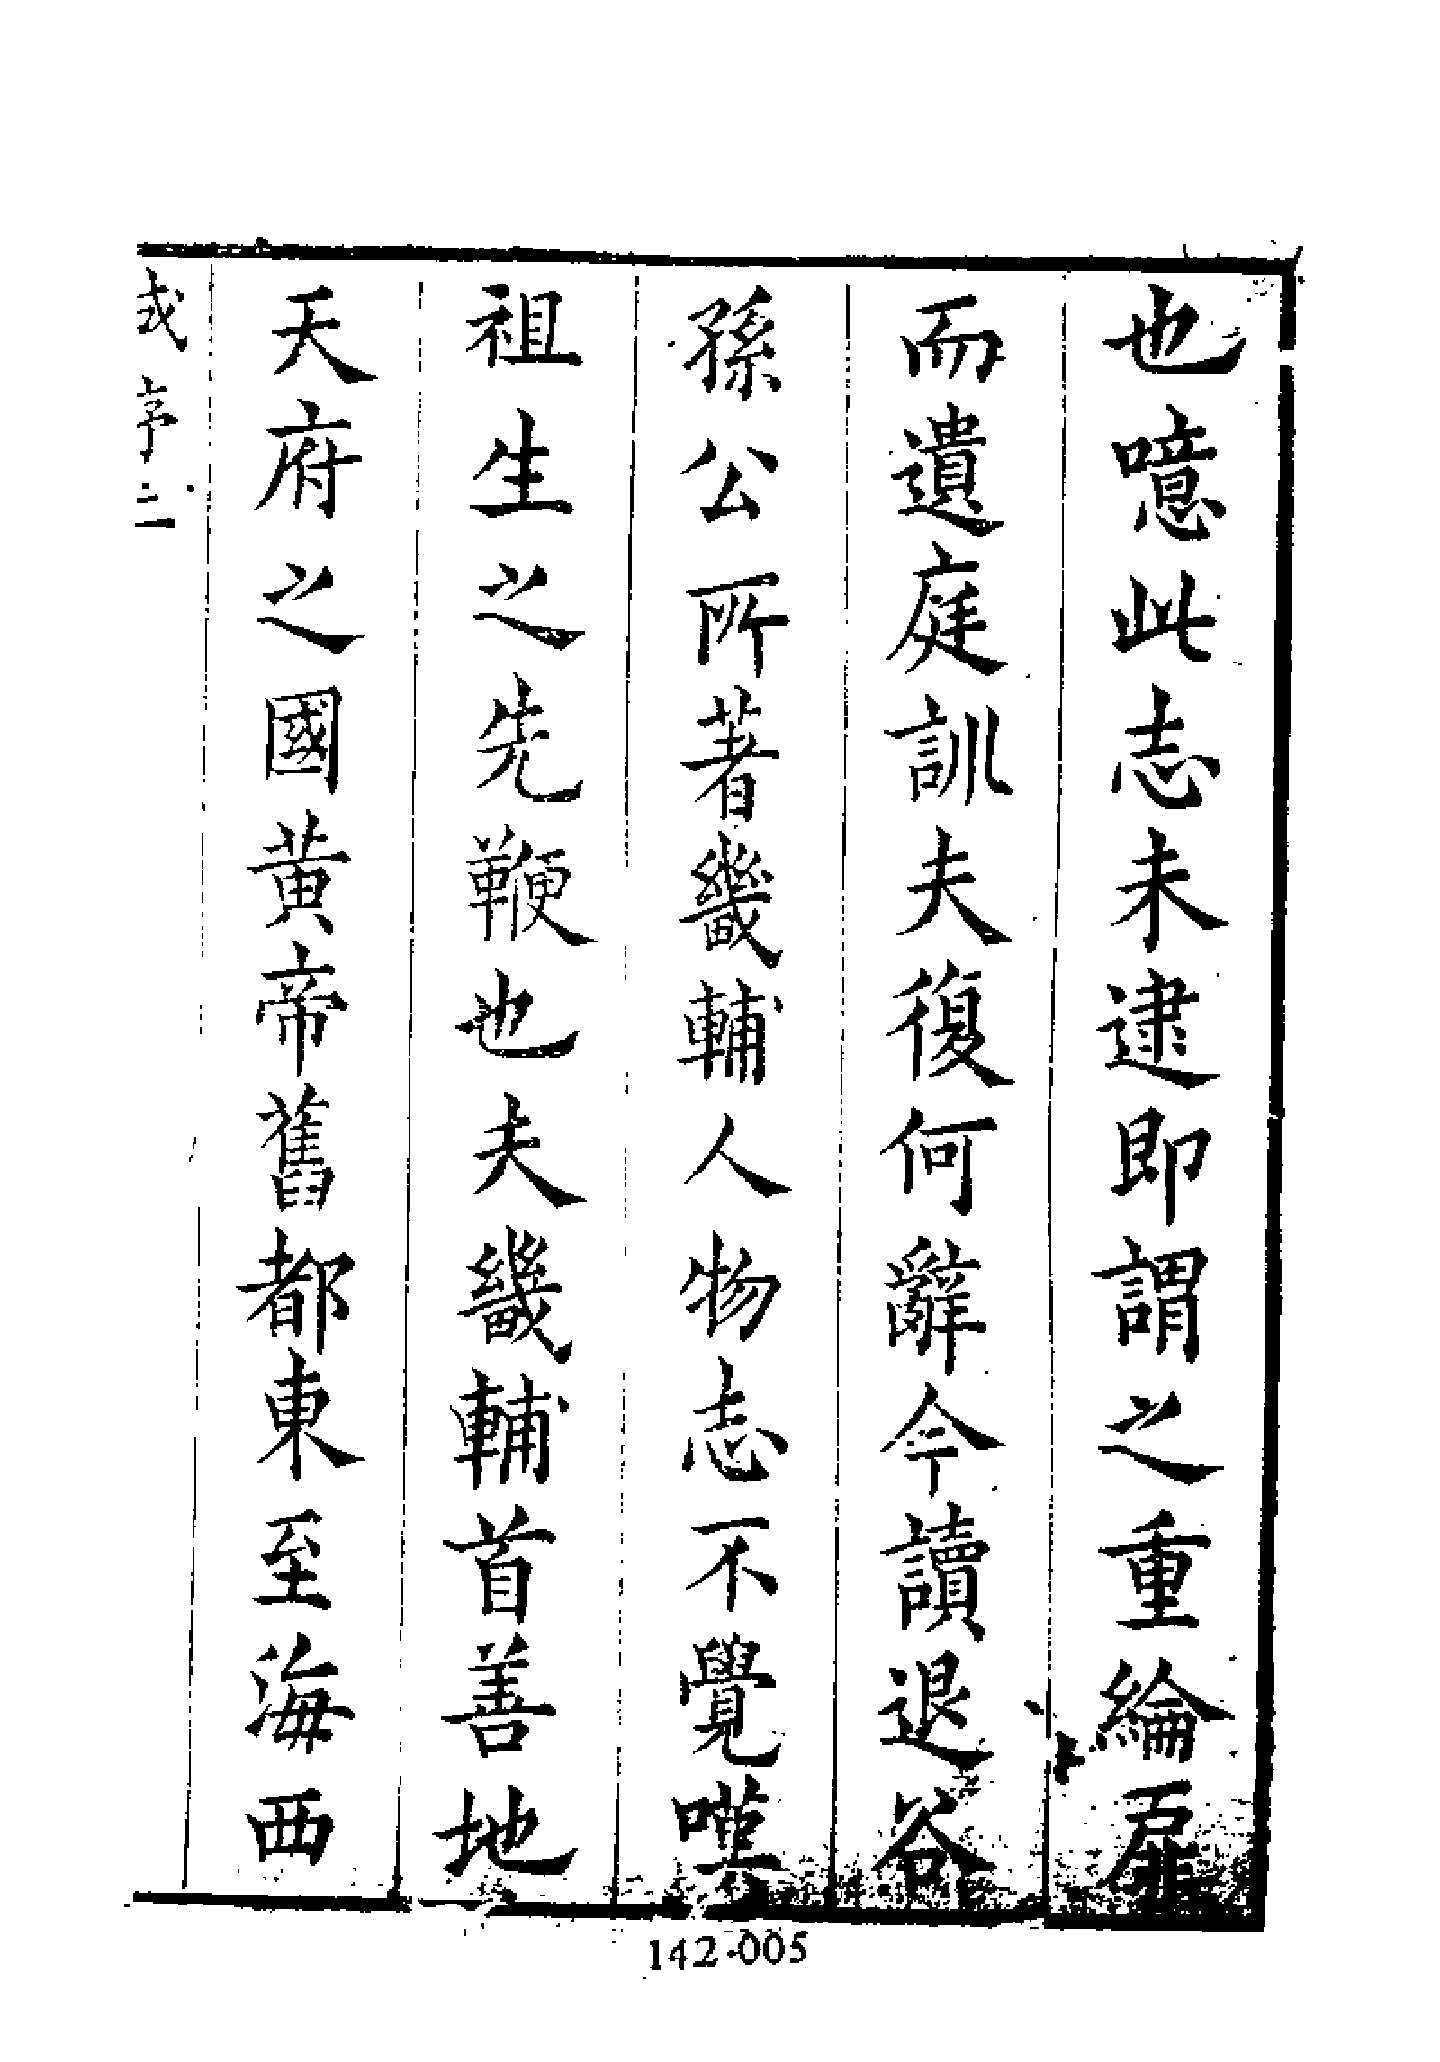 也噫此志未逮即謂之重綸扉
而遺庭訓夫復何辭今讀退谷
孫公所著畿輔人物志不覺嘆
祖生之先鞭也夫畿輔首善地
天府之國黃帝舊都東至海西
序二
142-005